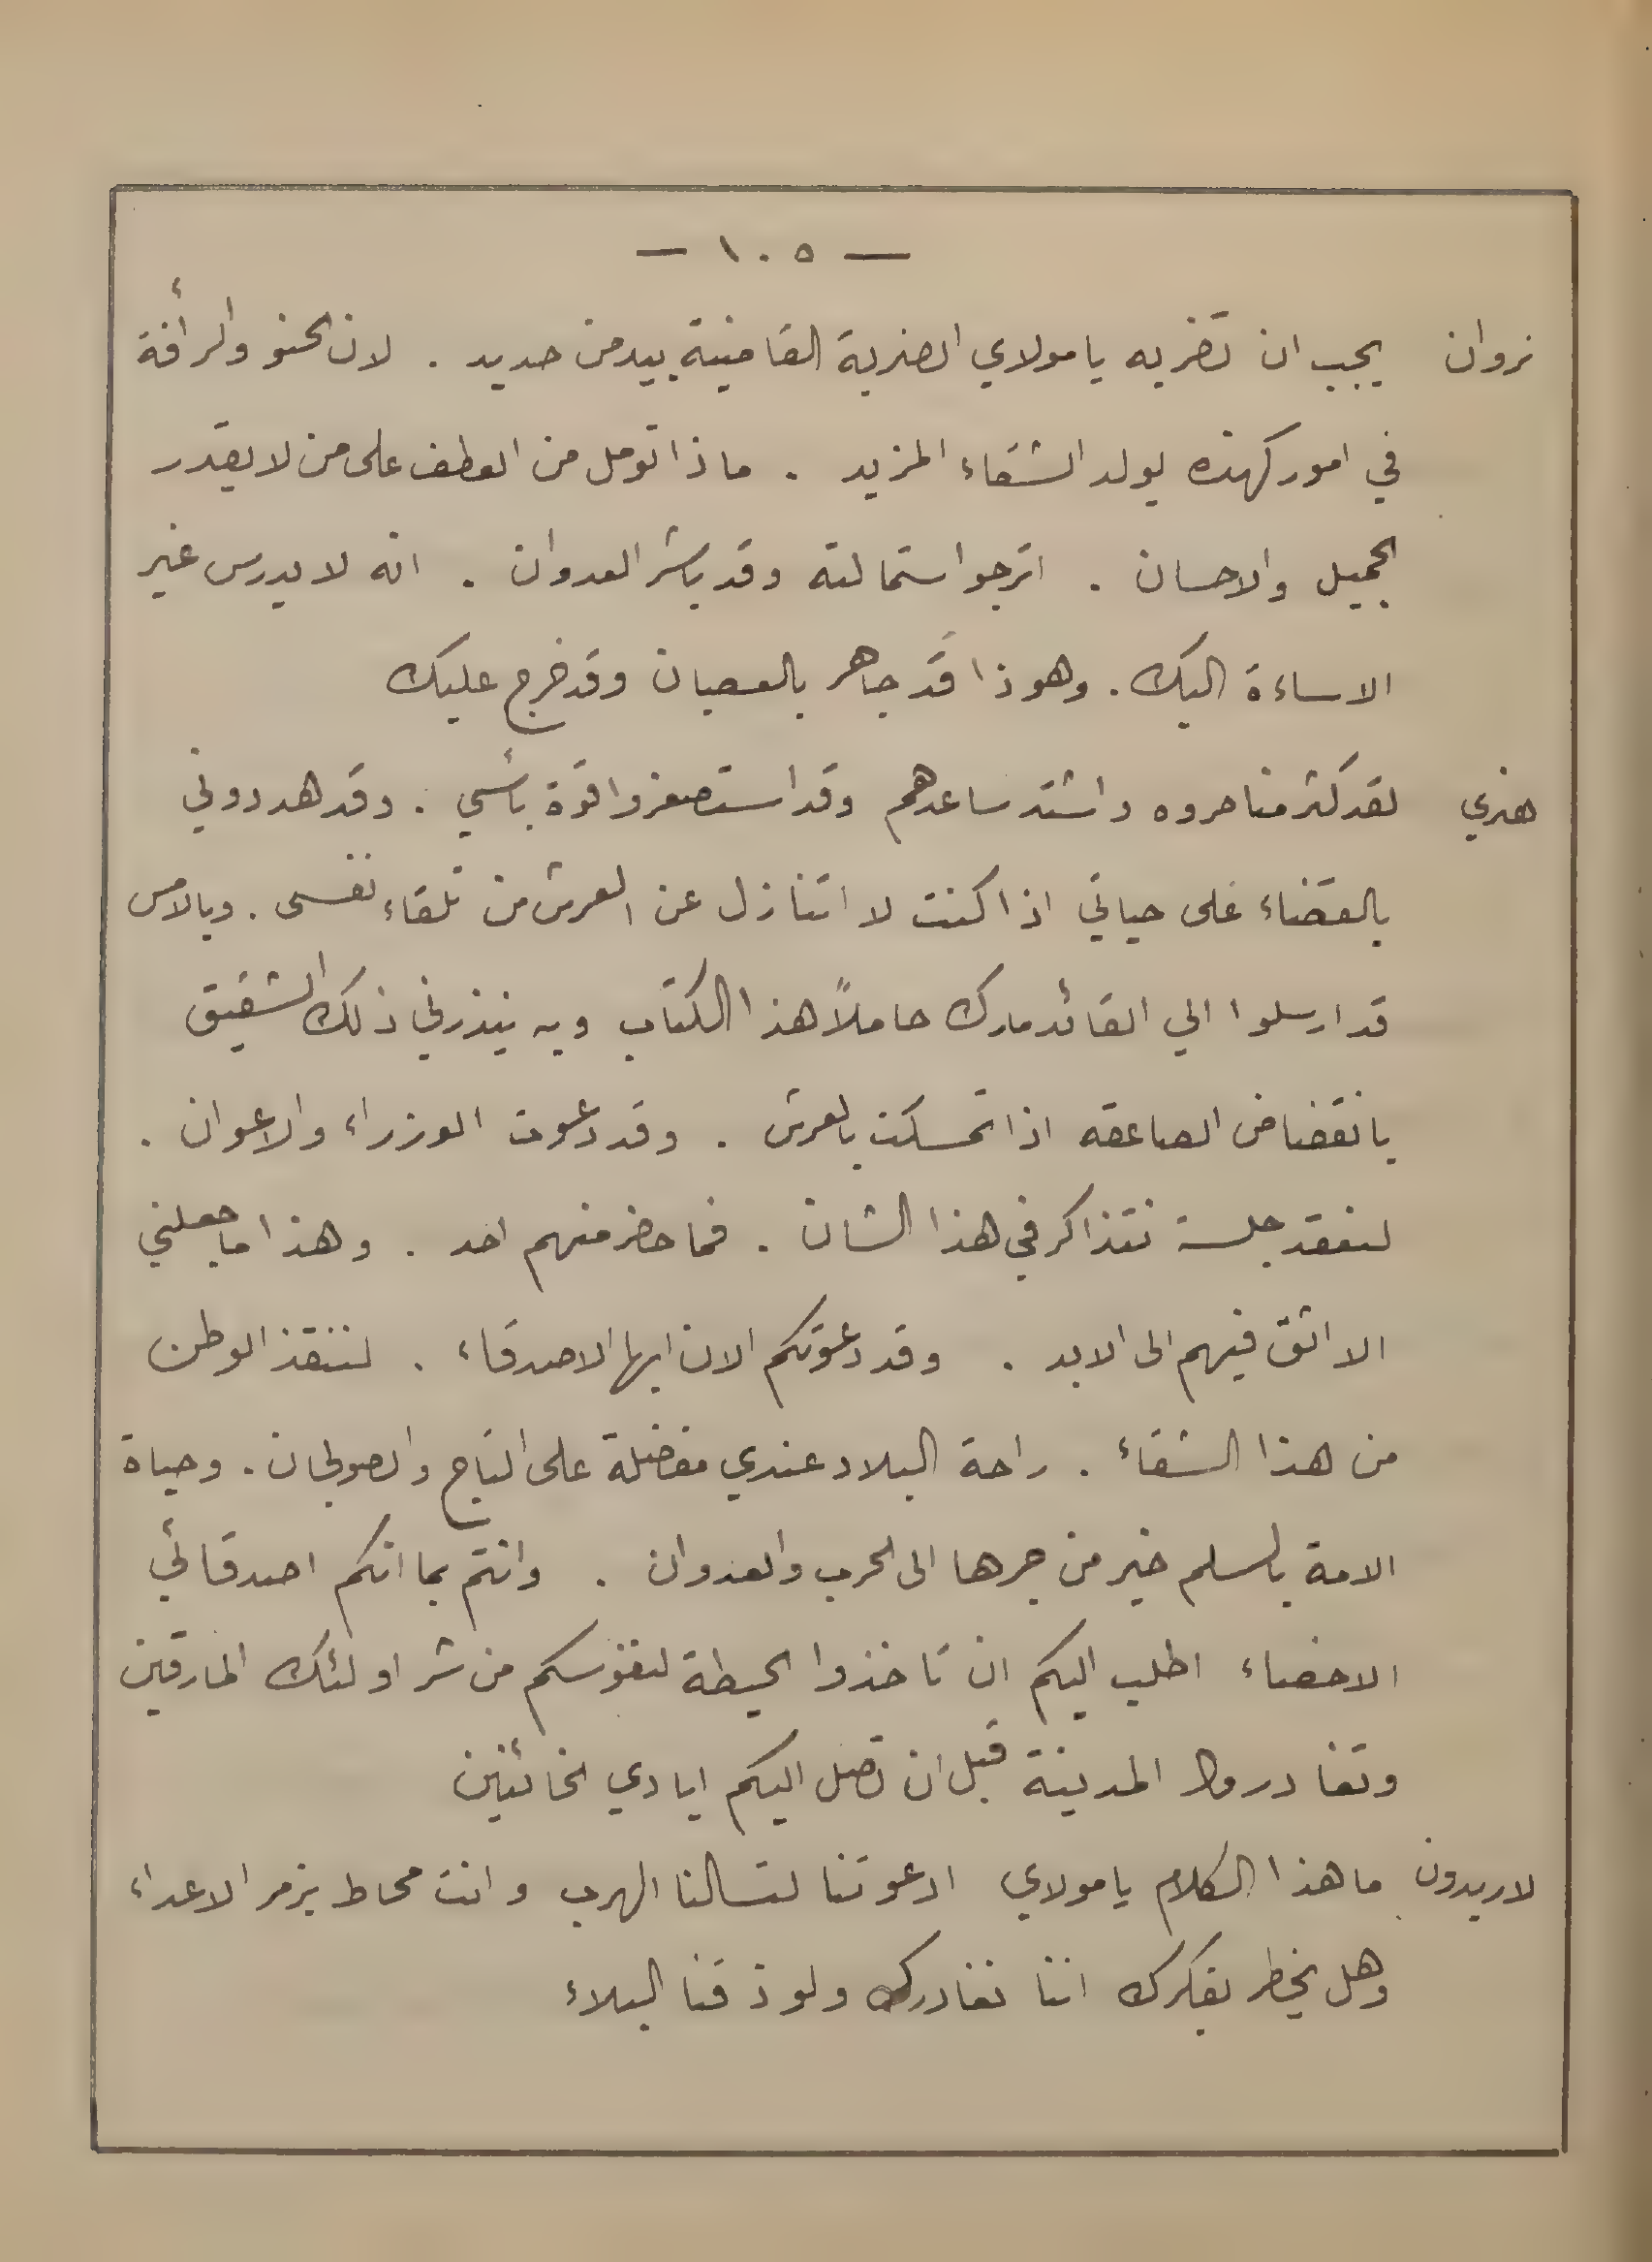 — ١٠٥ —
نروان يجب ان تضربه يا مولاي الضربة القاضية بيد من حديد . لان الحنو والرأفة
في امور كهذه يولد الشقاء المزيد . ماذا تومل من العطف على من لا يقدر
الجميل والاحسان . اترجو استمالته وقد باشر العدوان . انه لا يدرس غير
الاساءة اليك . وهوذا قد جاهر بالعصيان وقد خرج عليك
هنري لقد كثر مناصروه واشتد ساعدهم وقد استصغروا قوة بأسي . وقد هددوني
بالقضاء على حياتي اذا كنت لا اتنازل عن العرش من تلقاء نفسي . وبالامس
قد ارسلوا الي القائد مارك حاملاً هذا الكتاب وبه ينذرني ذلك الشقيق
بانقضاض الصاعقه اذا تمسكت بالعرش . وقد دعوت الوزراء والاعوان .
لنعقد جلسة نتذاكر في هذا الشان . فما حضر منهم احد . وهذا ما جعلني
الا اثق فيهم الى الابد . وقد دعوتكم الان ايها الاصدقاء . لننقذ الوطن
من هذا الشقاء . راحة البلاد عندي مفضلة على التاج والصولجان . وحياة
الامة بالسلم خير من جرها الى الحرب والعدوان . وانتم بما انكم اصدقائي
الاخصاء اطلب اليكم ان تاخذوا الحيطة لنفوسكم من شر اولئك المارقين
وتغادروا المدينة قبل ان تصل اليكم ايادي الخائنين
لاريدون ما هذا الكلام يا مولاي ادعوتنا لتسالنا الهرب وانت محاط بزمر الاعداء
وهل يخطر بفكرك اننا نغادرك ولو ذقنا البلاء